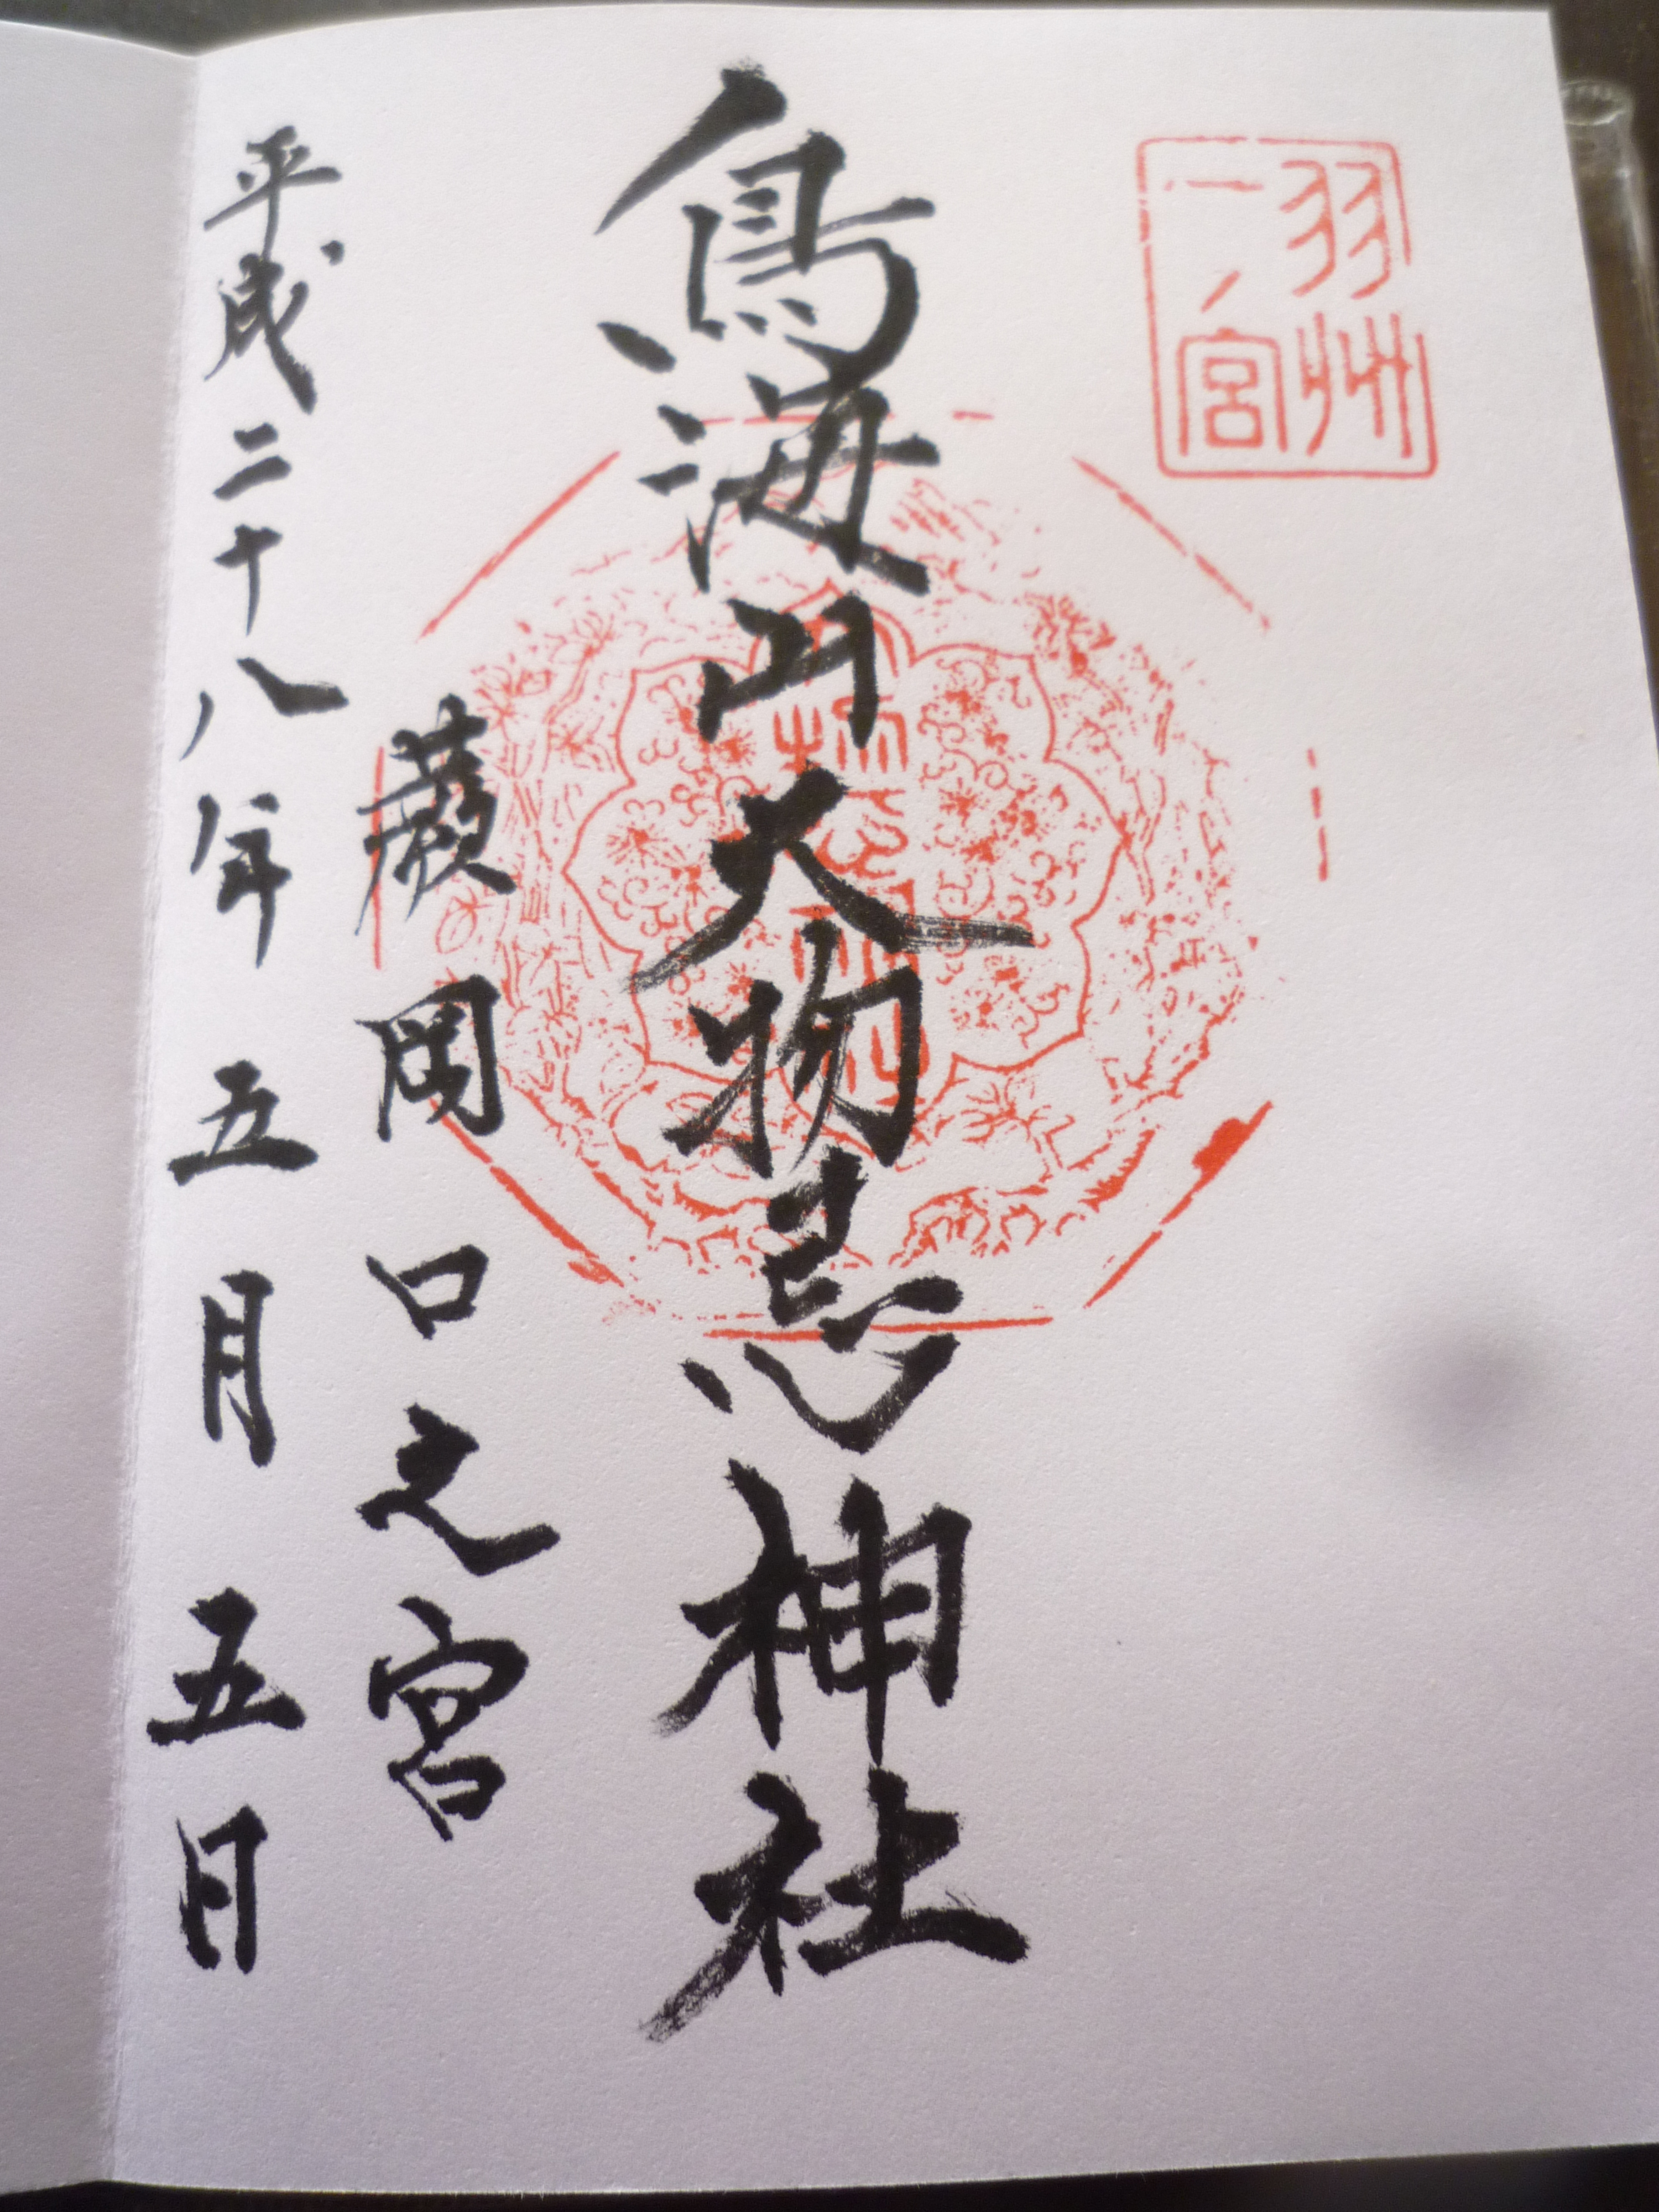 羽州
一ノ宮
鳥海山大物忌神社
蕨岡口之宮
平成二十八年五月五日